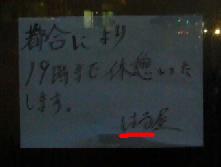 都合により
19時まで休憩いた
します。
はる屋